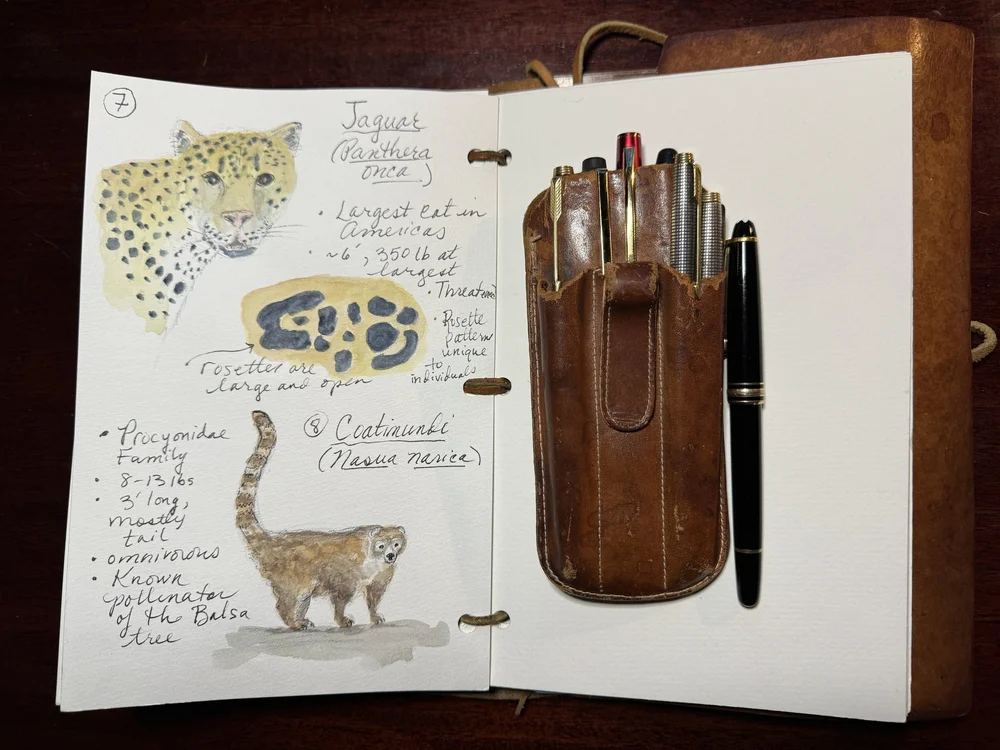 7
Jaguar
(Panthera
onca)
• Largest cat in
Americas
• ~6', 350 lb at
largest
• Threatened
• Rosette
pattern
unique
to
individuals
rosettes are
large and open
8 Coatimundi
(Nasua narica)
• Procyonidae
Family
• 8-13 lbs
• 3' long,
mostly
tail
• omnivorous
• Known
pollinator
of the Balsa
tree